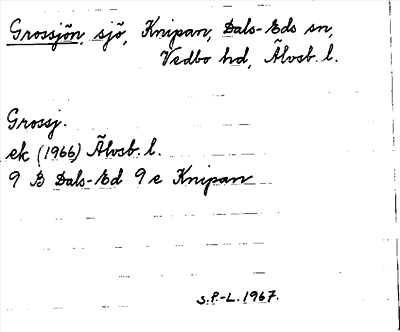 Grossjön, sjö, Knipan, Dals-Eds sn,
Vedbo hd, Älvsb. l.
Grossj.
ek (1966) Älvsb. l.
9 B Dals-Ed 9 e Knipan
S.P.-L. 1967.